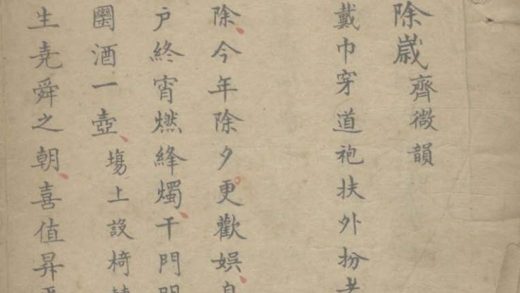 除歲齊微韻
戴巾穿道袍扶外扮
除、今年除夕更歡娛、
户終宵燃絳燭、千門
圞酒一壺、塲上設椅
生堯舜之朝、喜值昇